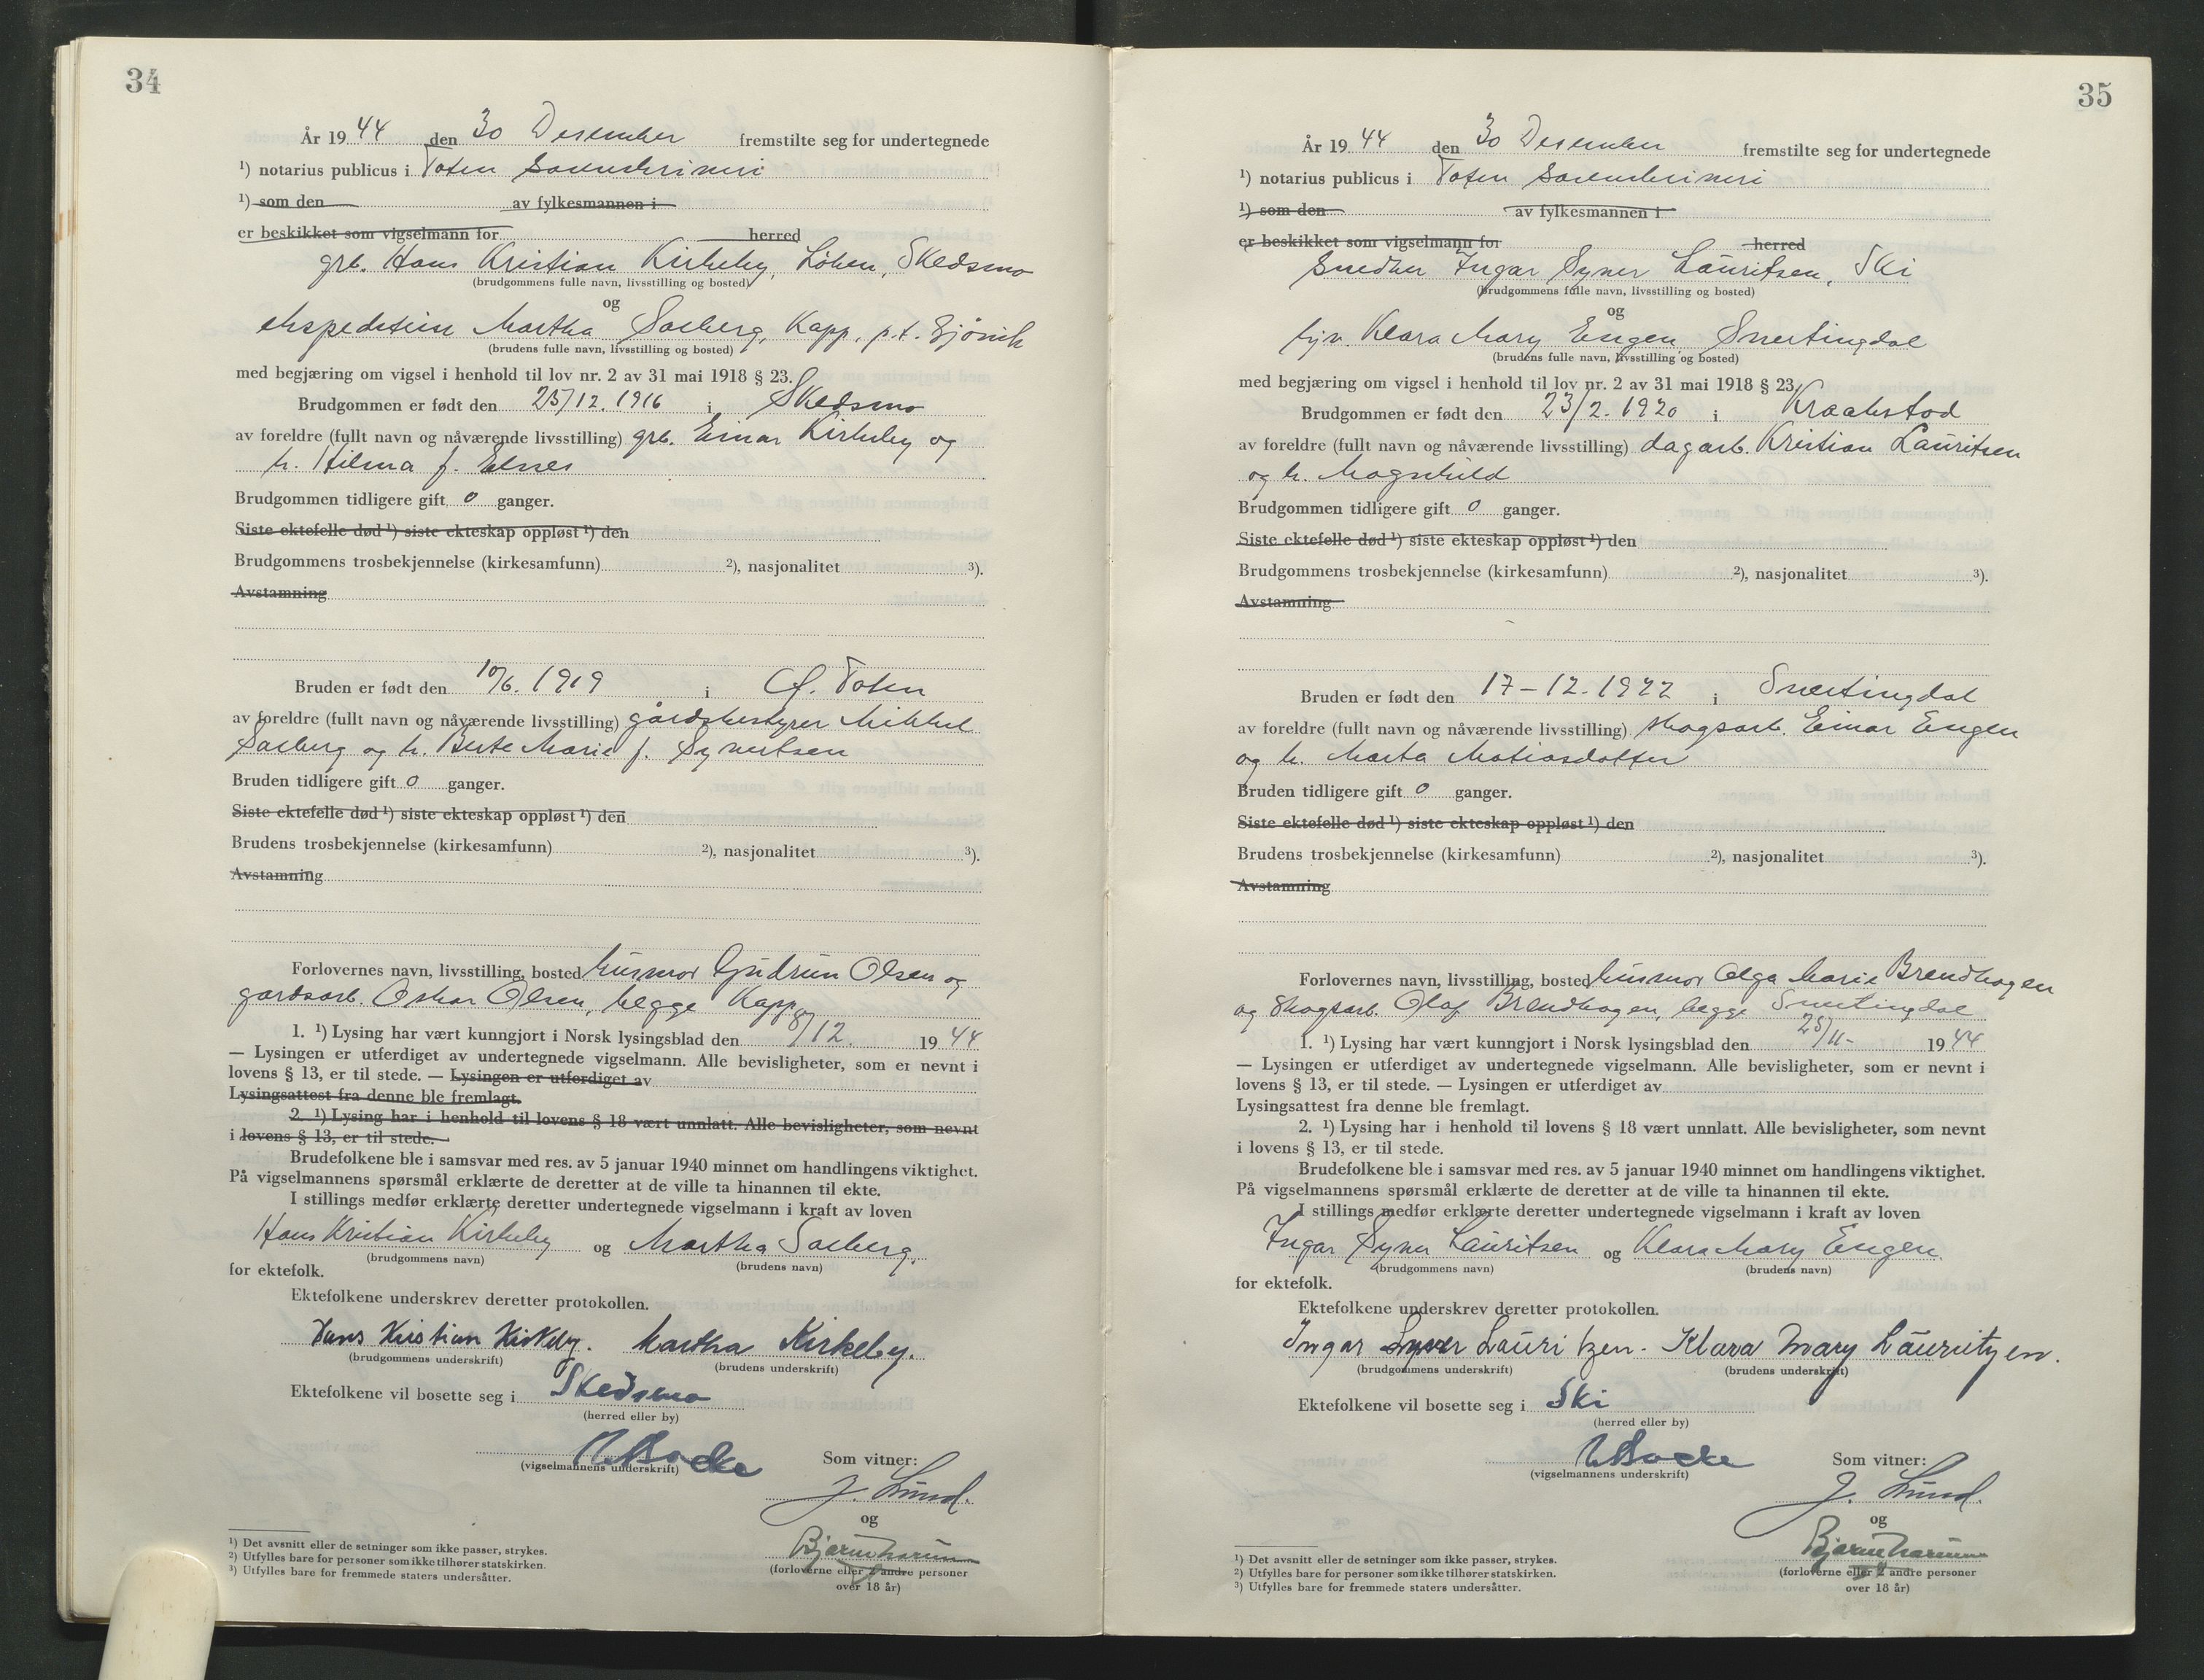 34
År 1944 den 30 Desember fremstilte seg for undertegnede
¹) notarius publicus i Toten sorenskriveri
¹) som den av fylkesmannen i
er beskikket som vigselmann for herred
grb. Hans Kristian Kirkeby, Løken, Skedsmo
(brudgommens fulle navn, livsstilling og bosted)
og
ekspeditrise Martha Solberg, Kapp, p.t. Gjøvik
(brudens fulle navn, livsstilling og bosted)
med begjæring om vigsel i henhold til lov nr. 2 av 31 mai 1918 § 23.
Brudgommen er født den 25/12. 1916 i Skedsmo
av foreldre (fullt navn og nåværende livsstilling) grb. Einar Kirkeby og
h. Hilma f.
Brudgommen tidligere gift 0 ganger.
Siste ektefelle død ¹) siste ekteskap oppløst ¹) den
Brudgommens trosbekjennelse (kirkesamfunn) ²), nasjonalitet ³).
Avstamning
Bruden er født den 10/6. 1919 i Ø. Toten
av foreldre (fullt navn og nåværende livsstilling) gårdsbestyrer Mikkel
Solberg og h. Berte Marie f. Syvertsen
Bruden tidligere gift 0 ganger.
Siste ektefelle død ¹) siste ekteskap oppløst ¹) den
Brudens trosbekjennelse (kirkesamfunn) ²), nasjonalitet ³).
Avstamning
Forlovernes navn, livsstilling, bosted husmor Gudrun Olsen og
gardsarb. Oskar Olsen, begge Kapp
1. ¹) Lysing har vært kunngjort i Norsk lysingsblad den 8/12. 1944
— Lysingen er utferdiget av undertegnede vigselmann. Alle bevisligheter, som er nevnt i
lovens § 13, er til stede. — Lysingen er utferdiget av
Lysingsattest fra denne ble fremlagt.
2. ¹) Lysing har i henhold til lovens § 18 vært unnlatt. Alle bevisligheter, som nevnt
i lovens § 13, er til stede.
Brudefolkene ble i samsvar med res. av 5 januar 1940 minnet om handlingens viktighet.
På vigselmannens spørsmål erklærte de deretter at de ville ta hinannen til ekte.
I stillings medfør erklærte deretter undertegnede vigselmann i kraft av loven
Hans Kristian Kirkeby og Martha Solberg
(brudgommens navn) (brudens navn)
for ektefolk.
Ektefolkene underskrev deretter protokollen.
Hans Kristian Kirkeby. Martha Kirkeby.
(brudgommens underskrift) (brudens underskrift)
Ektefolkene vil bosette seg i Skedsmo
(herred eller by)
(vigselmannens underskrift) Som vitner:
J. Lund.
og
Bjarne
(forloverne eller 2 andre personer
over 18 år)
¹) Det avsnitt eller de setninger som ikke passer, strykes.
²) Utfylles bare for personer som ikke tilhører statskirken.
³) Utfylles bare for fremmede staters undersåtter.
35
År 1944 den 30 Desember fremstilte seg for undertegnede
¹) notarius publicus i Toten sorenskriveri
¹) som den av fylkesmannen i
er beskikket som vigselmann for herred
snedker Ingar Syver Lauritsen, Ski
(brudgommens fulle navn, livsstilling og bosted)
og
hjv. Klara Mary Engen, Snertingdal
(brudens fulle navn, livsstilling og bosted)
med begjæring om vigsel i henhold til lov nr. 2 av 31 mai 1918 § 23.
Brudgommen er født den 23/2. 1920 i Kraakstad
av foreldre (fullt navn og nåværende livsstilling) dagarb. Kristian Lauritsen
og h. Magnhild
Brudgommen tidligere gift 0 ganger.
Siste ektefelle død ¹) siste ekteskap oppløst ¹) den
Brudgommens trosbekjennelse (kirkesamfunn) ²), nasjonalitet ³).
Avstamning
Bruden er født den 17-12. 1922 i Snertingdal
av foreldre (fullt navn og nåværende livsstilling) skogsarb. Einar Engen
og h. Marta Matiasdatter
Bruden tidligere gift 0 ganger.
Siste ektefelle død ¹) siste ekteskap oppløst ¹) den
Brudens trosbekjennelse (kirkesamfunn) ²), nasjonalitet ³).
Avstamning
Forlovernes navn, livsstilling, bosted husmor Olga Marie Brendhagen
og skogsarb. Olaf Brendhagen, begge Snertingdal
1. ¹) Lysing har vært kunngjort i Norsk lysingsblad den 25/11- 1944
— Lysingen er utferdiget av undertegnede vigselmann. Alle bevisligheter, som er nevnt i
lovens § 13, er til stede. — Lysingen er utferdiget av
Lysingsattest fra denne ble fremlagt.
2. ¹) Lysing har i henhold til lovens § 18 vært unnlatt. Alle bevisligheter, som nevnt
i lovens § 13, er til stede.
Brudefolkene ble i samsvar med res. av 5 januar 1940 minnet om handlingens viktighet.
På vigselmannens spørsmål erklærte de deretter at de ville ta hinannen til ekte.
I stillings medfør erklærte deretter undertegnede vigselmann i kraft av loven
Ingar Syver Lauritsen og Klara Mary Engen
(brudgommens navn) (brudens navn)
for ektefolk.
Ektefolkene underskrev deretter protokollen.
Ingar Syver Lauritzen. Klara Mary Lauritzen.
(brudgommens underskrift) (brudens underskrift)
Ektefolkene vil bosette seg i Ski
(herred eller by)
(vigselmannens underskrift) Som vitner:
J. Lund.
og
Bjarne
(forloverne eller 2 andre personer
over 18 år)
¹) Det avsnitt eller de setninger som ikke passer, strykes.
²) Utfylles bare for personer som ikke tilhører statskirken.
³) Utfylles bare for fremmede staters undersåtter.